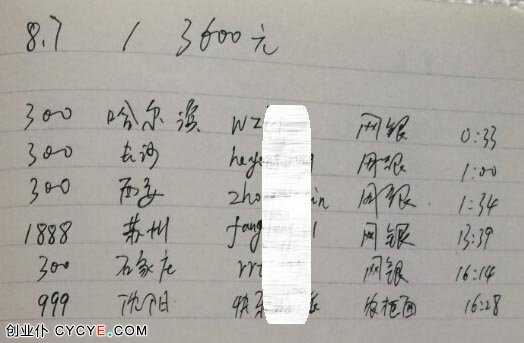 8.7 1 3600元
300 哈尔滨 wz 网银 0:33
300 长沙 heye 网银 1:00
300 西安 zho in 网银 1:34
1888 苏州 fang 1 网银 13:39
300 石家庄 rr 网银 16:14
999 沈阳 快乐 16:28
创业仆 CYCYE.COM